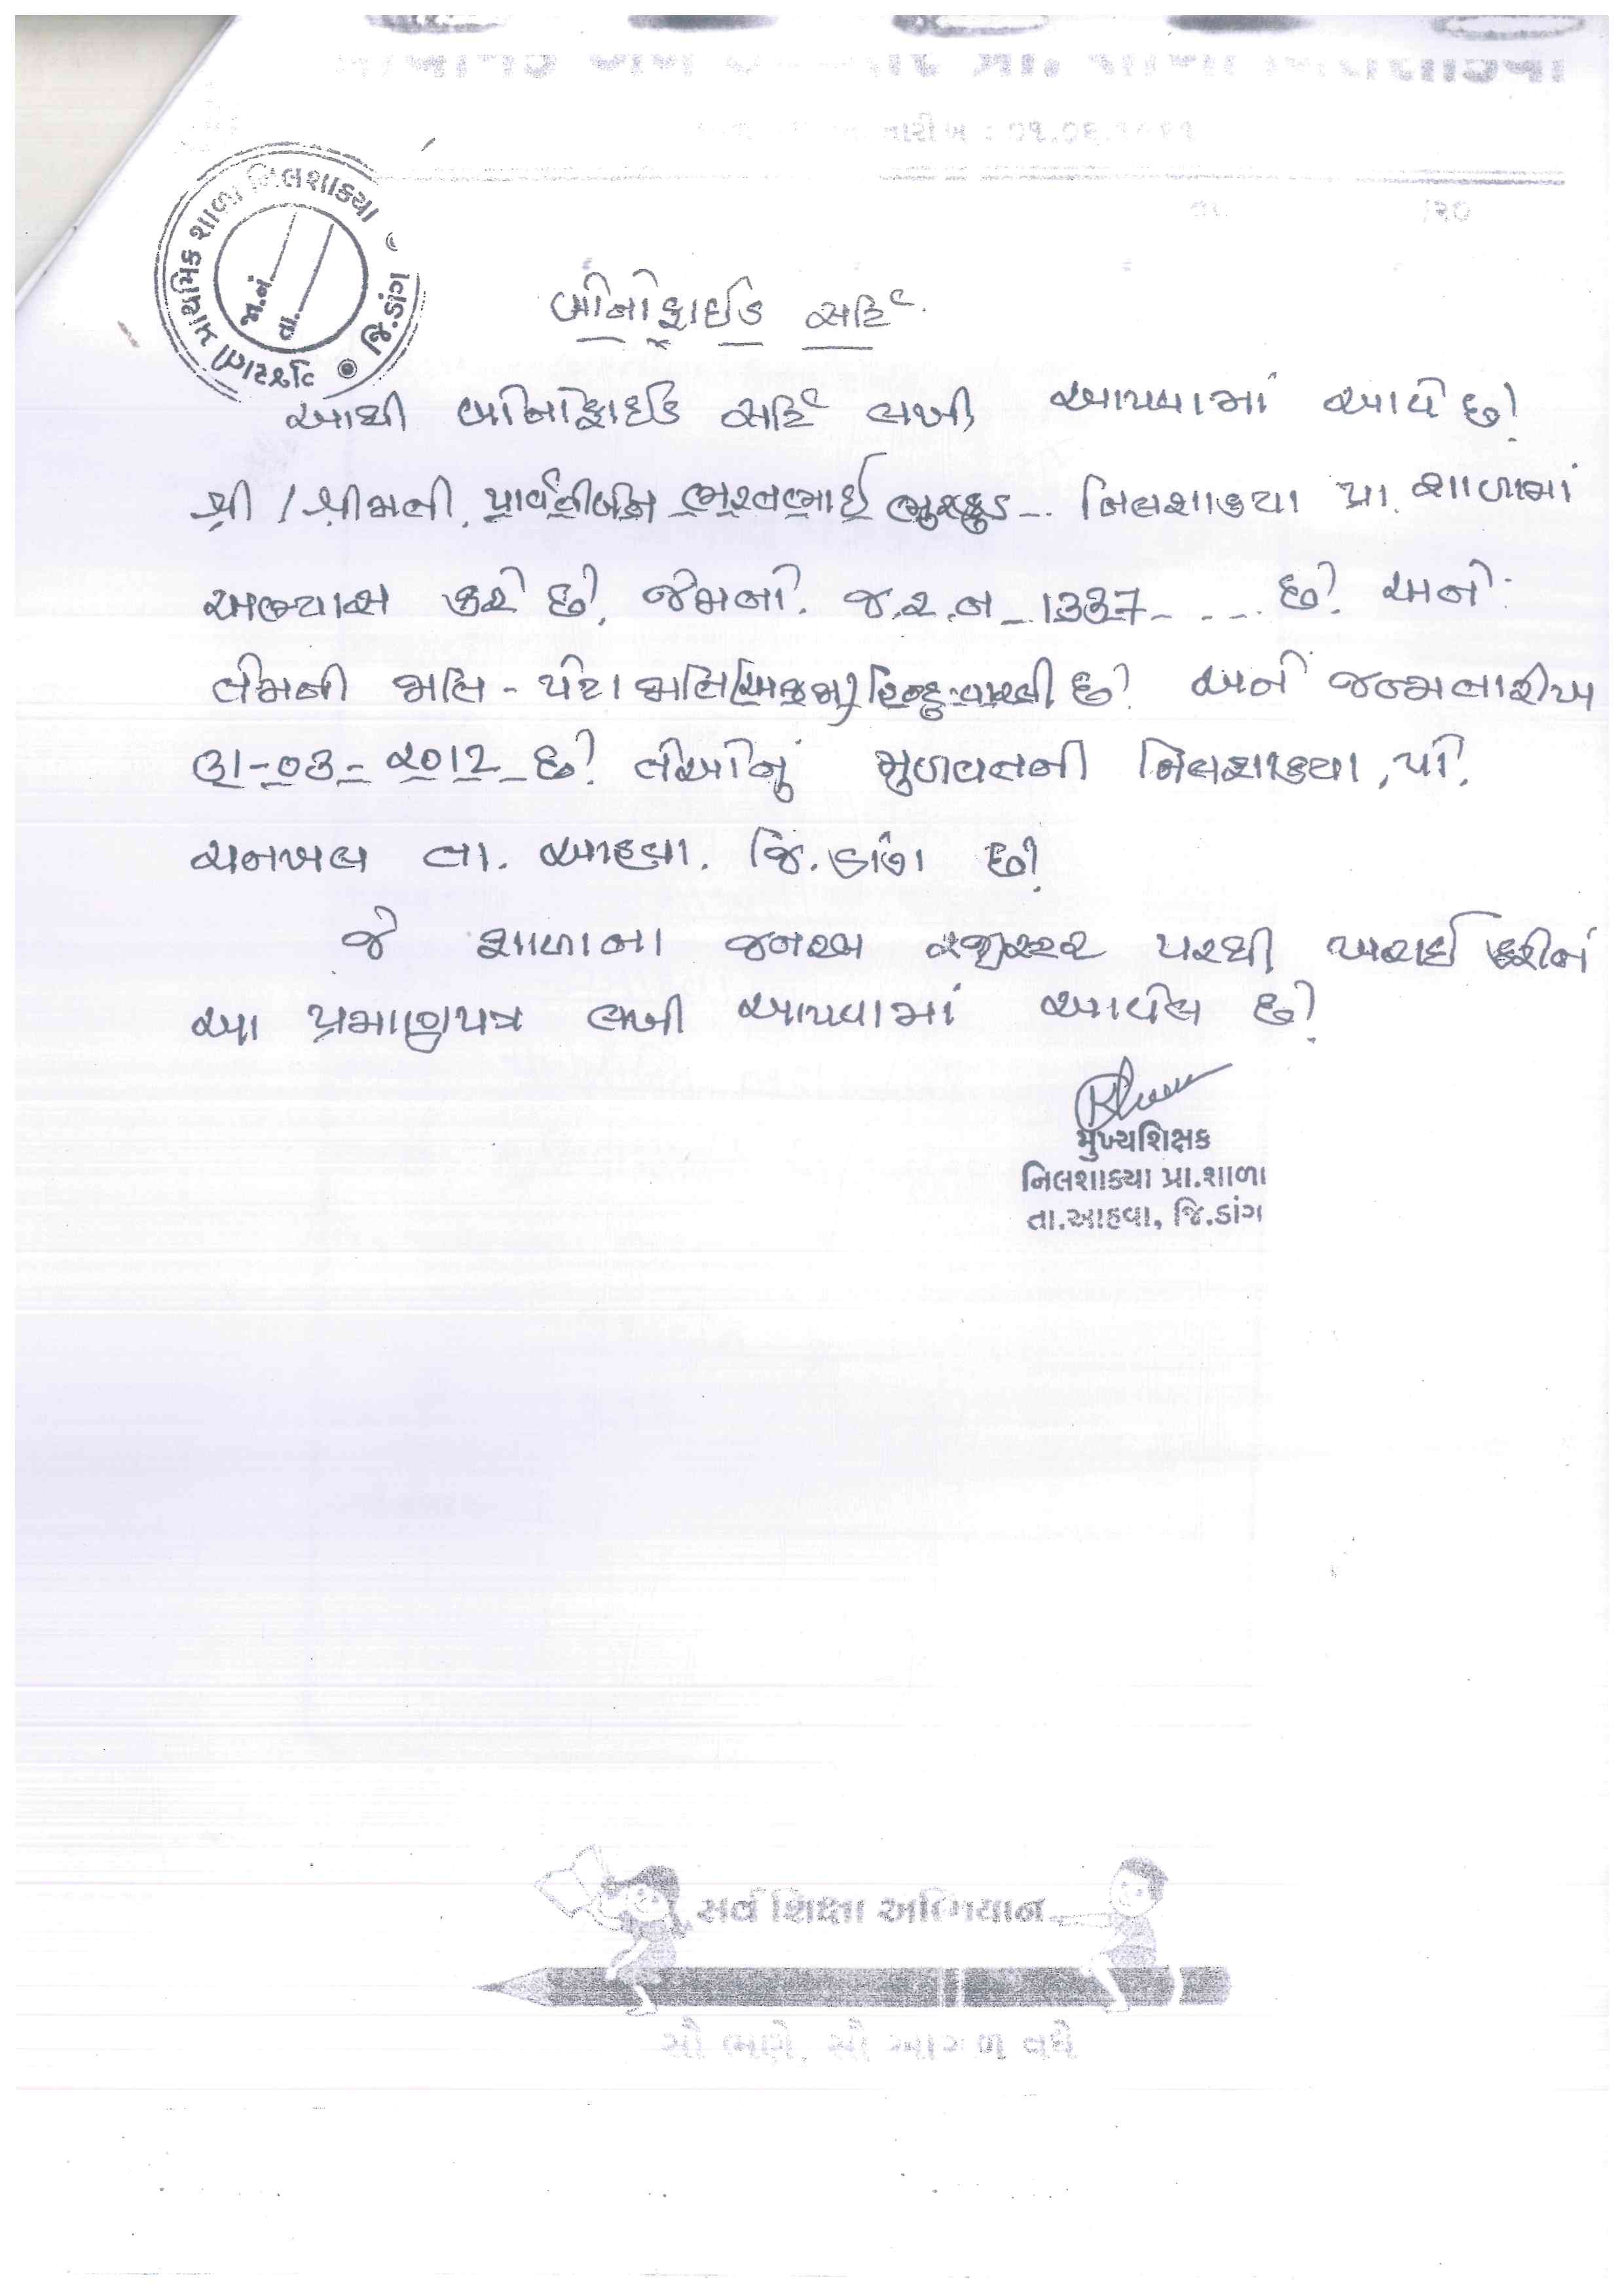 પ્રાથમિક શાળા નિલશાક્યા
જિ.ડાંગ
જા.નં.
તા.
તારીખ : ૦૧.૦૬.૧૯૧૧
બોનોફાઈડ સર્ટિ
આથી બોનોફાઈડ સર્ટિ લખી આપવામાં આવે છે.
શ્રી / શ્રીમતી. પાર્વતીબેન ભરતભાઈ ભુરકુડ નિલશાક્યા પ્રા. શાળામાં
અભ્યાસ કરે છે. જેમનો જ.ર.ન 1337 છે. અને
તેમની જાતિ - પેટા જાતિ (અ.જ.જા) હિન્દુ-વારલી છે. અને જન્મતારીખ
૩૧-૦૩-૨૦૧૨ છે. તેઓનું મુળવતની નિલશાક્યા, પો.
ચનખલ તા. આહવા. જિ. ડાંગ છે.
જે શાળાના જનરલ રજીસ્ટર પરથી ખરાઈ કરીને
આ પ્રમાણપત્ર લખી આપવામાં આવેલ છે.
મુખ્યશિક્ષક
નિલશાક્યા પ્રા.શાળા
તા.આહવા, જિ.ડાંગ
સર્વ શિક્ષા અભિયાન
સૌ ભણે, સૌ આગળ વધે